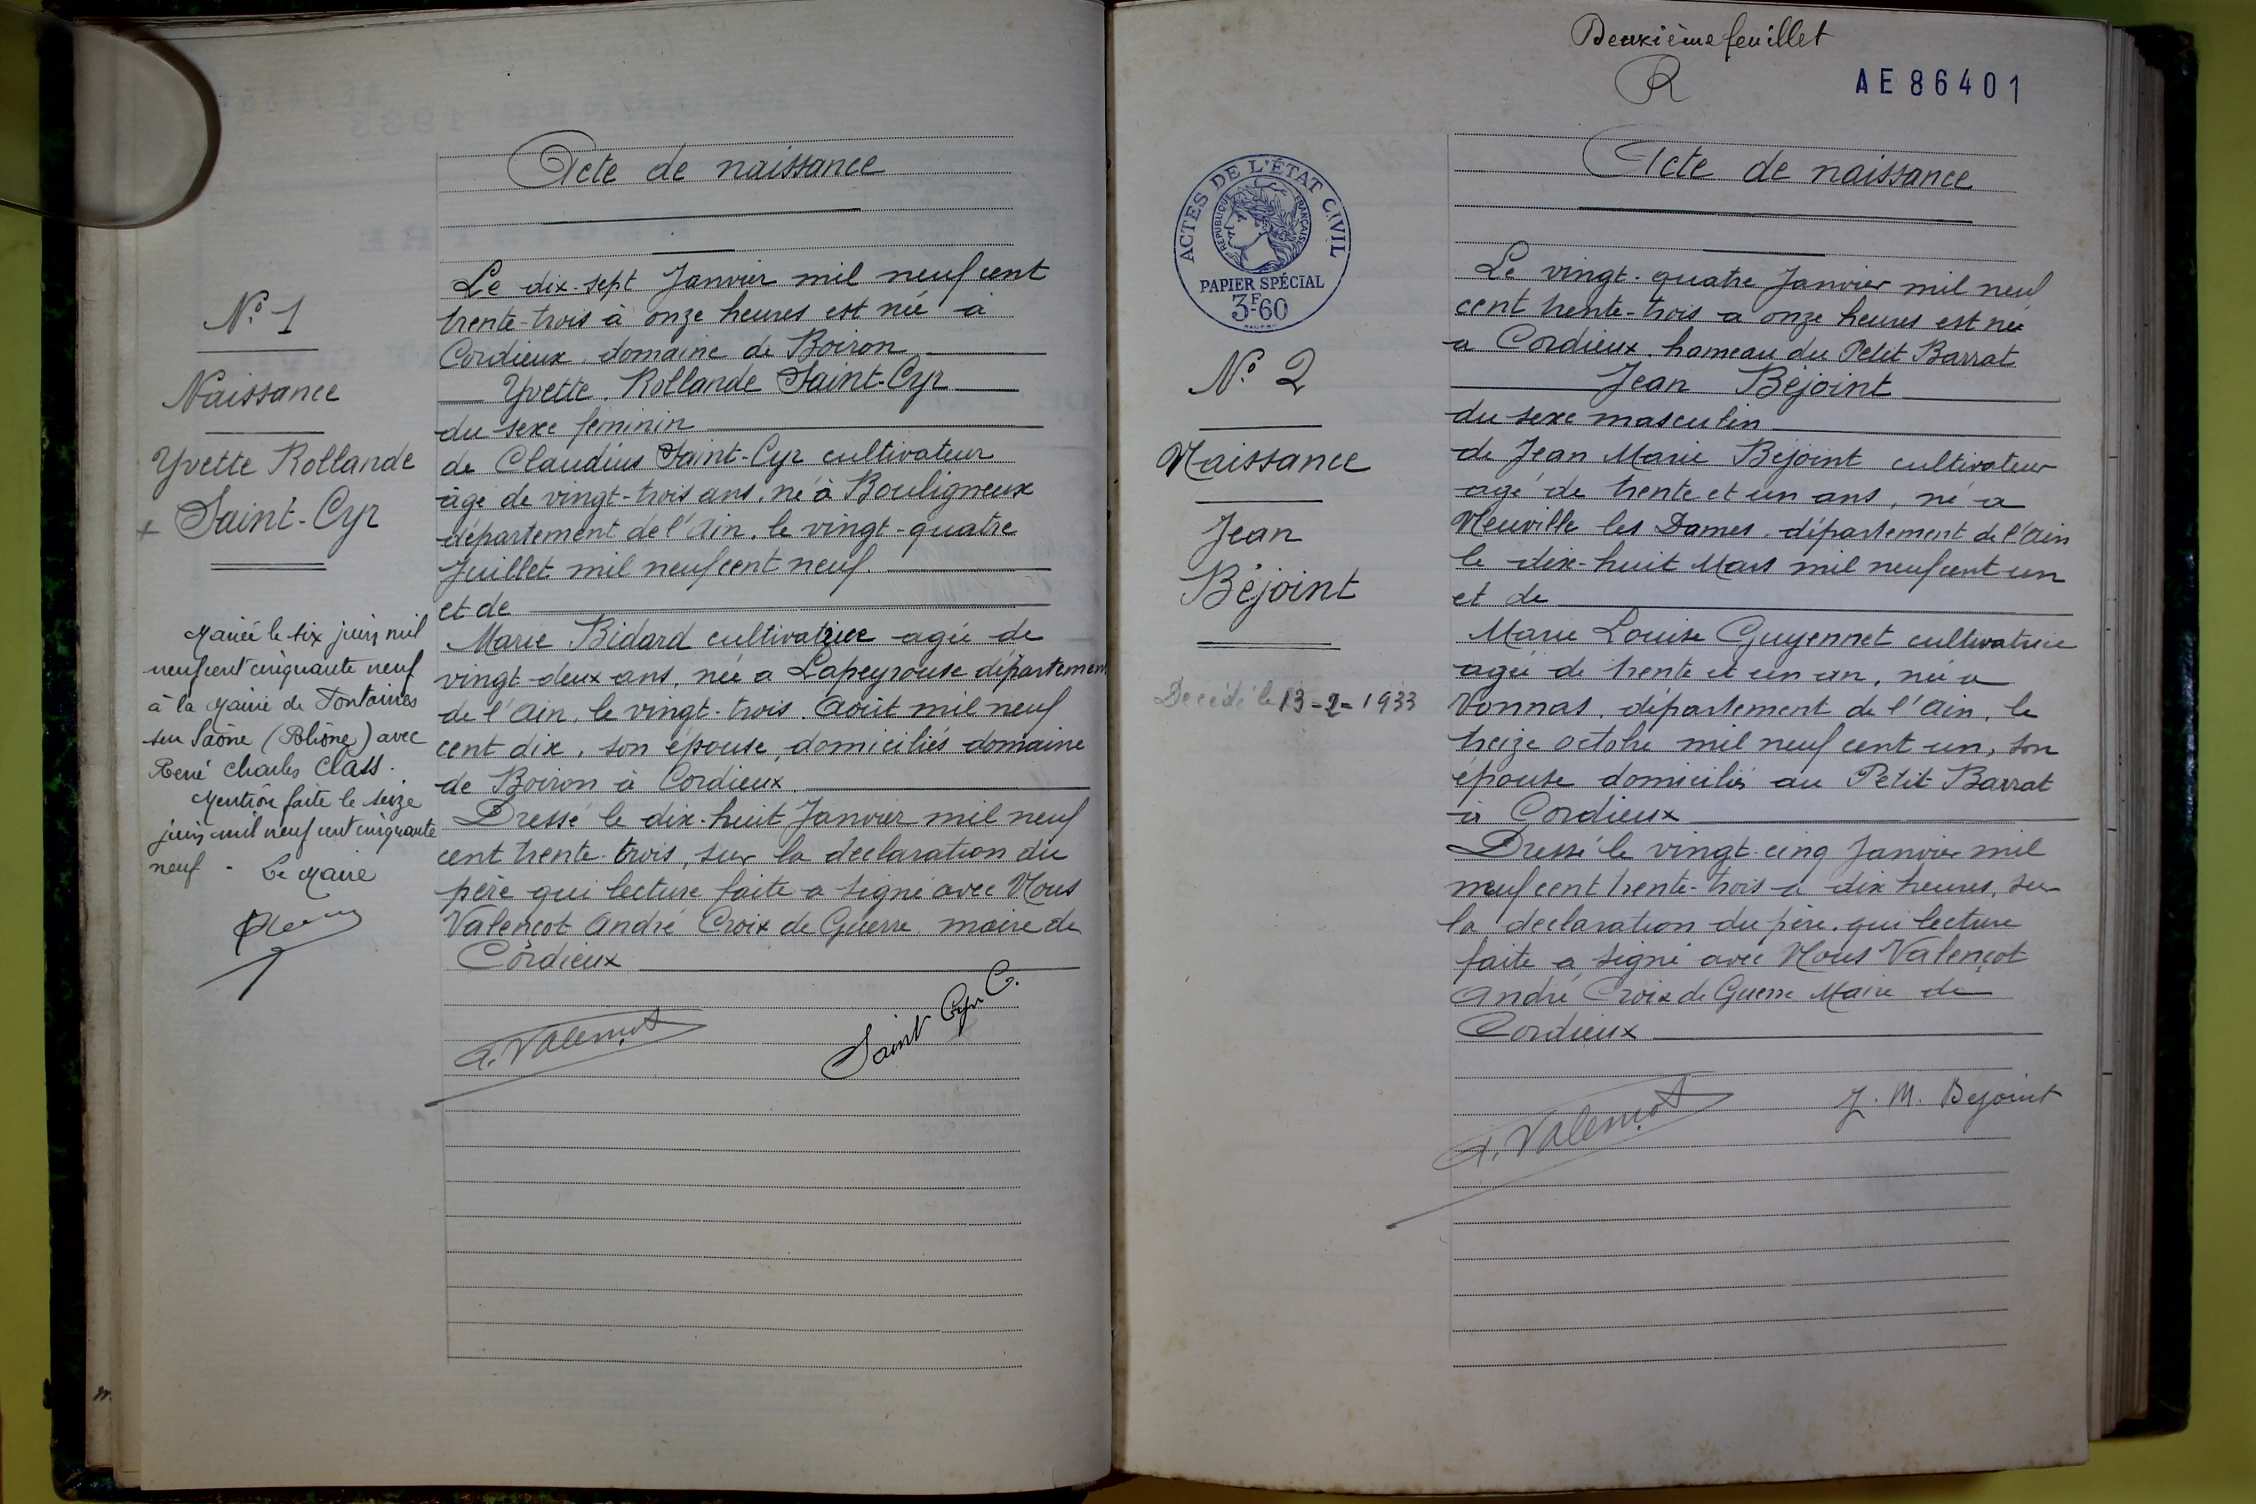 Acte de naissance
N° 1
Naissance
Yvette Rollande
Saint-Cyr
Mariée le six juin mil
neuf cent cinquante neuf
à la Mairie de Fontaines
sur Saône (Rhône) avec
René Charles Class.
Mention faite le seize
juin mil neuf cent cinquante
neuf - Le Maire
Le dix-sept Janvier mil neuf cent
trente-trois à onze heures est née à
Cordieux. domaine de Boiron
Yvette. Rollande Saint-Cyr
du sexe féminin
de Claudius Saint-Cyr cultivateur
âgé de vingt-trois ans, né à Bouligneux
département de l'Ain, le vingt-quatre
Juillet mil neuf cent neuf.
et de
Marie Bidard cultivatrice agée de
vingt-deux ans, née a Lapeyrouse département
de l'Ain, le vingt-trois Août mil neuf
cent dix, son épouse, domiciliés domaine
de Boiron à Cordieux.
Dressé le dix-huit Janvier mil neuf
cent trente-trois, sur la declaration du
père qui lecture faite a signé avec Nous
Valençot André Croix de Guerre maire de
Cordieux
A. Valençot
Saint Cyr C.
Deuxième feuillet
R
AE 86401
ACTES DE L'ÉTAT CIVIL
RÉPUBLIQUE FRANÇAISE
PAPIER SPÉCIAL
3F60
Acte de naissance
N° 2
Naissance
Jean
Béjoint
Decédé le 13-2-1933
Le vingt-quatre Janvier mil neuf
cent trente-trois a onze heures est né
a Cordieux. hameau du Petit Barrat
Jean Béjoint
du sexe masculin
de Jean Marie Béjoint cultivateur
agé de trente et un ans, né a
Neuville les Dames. département de l'Ain
le dix-huit Mars mil neuf cent un
et de
Marie Louise Guyennet cultivatrice
agée de trente et un an, née a
Vonnas, département de l'Ain, le
treize octobre mil neuf cent un, son
épouse domiciliés au Petit Barrat
à Cordieux
Dressé le vingt-cinq Janvier mil
neuf cent trente-trois a dix heures, sur
la declaration du père, qui lecture
faite a signé avec Nous Valençot
André Croix de Guerre Maire de
Cordieux
A. Valençot
J. M. Bejoint